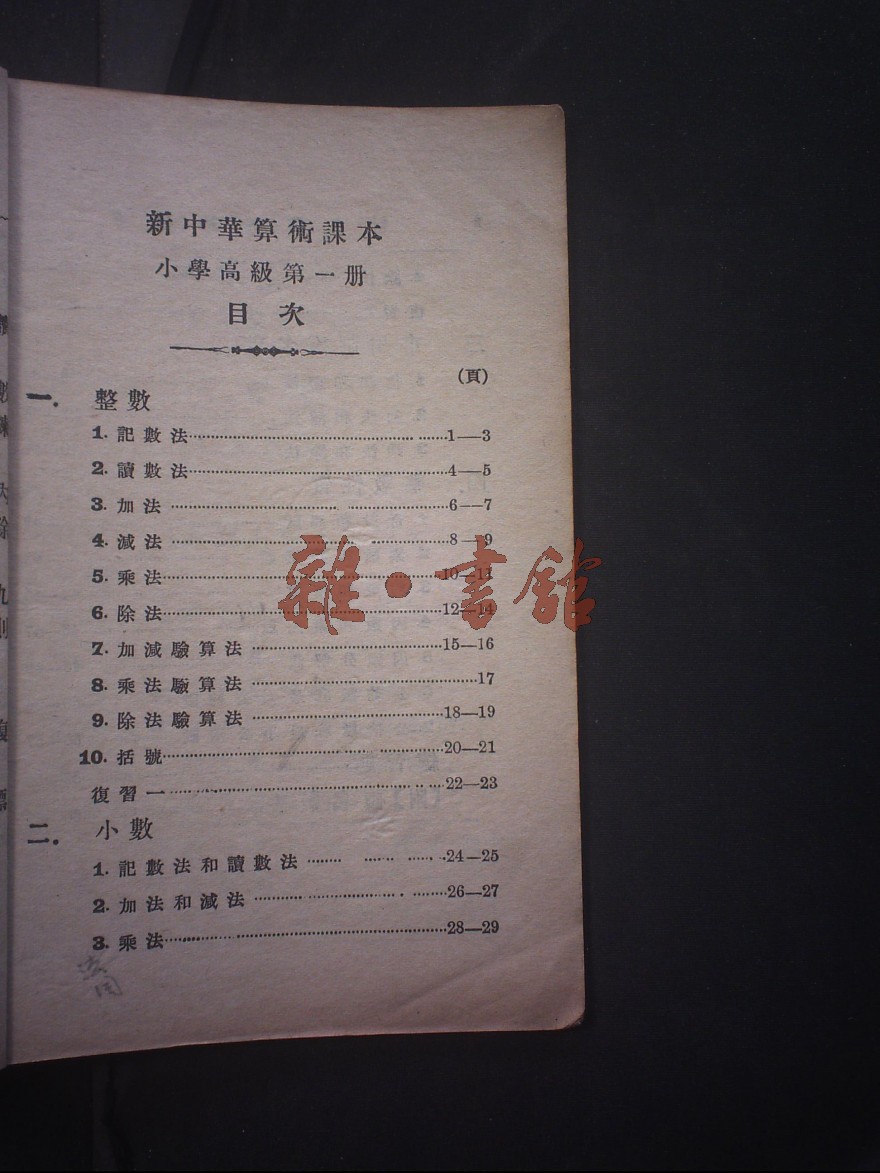 新中華算術課本
小學高級第一册
目次
(頁)
一. 整數
1. 記數法……1—3
2. 讀數法……4—5
3. 加法……6—7
4. 減法……8—9
5. 乘法……10—11
6. 除法……12—14
7. 加減驗算法……15—16
8. 乘法驗算法……17
9. 除法驗算法……18—19
10. 括號……20—21
復習一……22—23
二. 小數
1. 記數法和讀數法……24—25
2. 加法和減法……26—27
3. 乘法……28—29
雜·書館